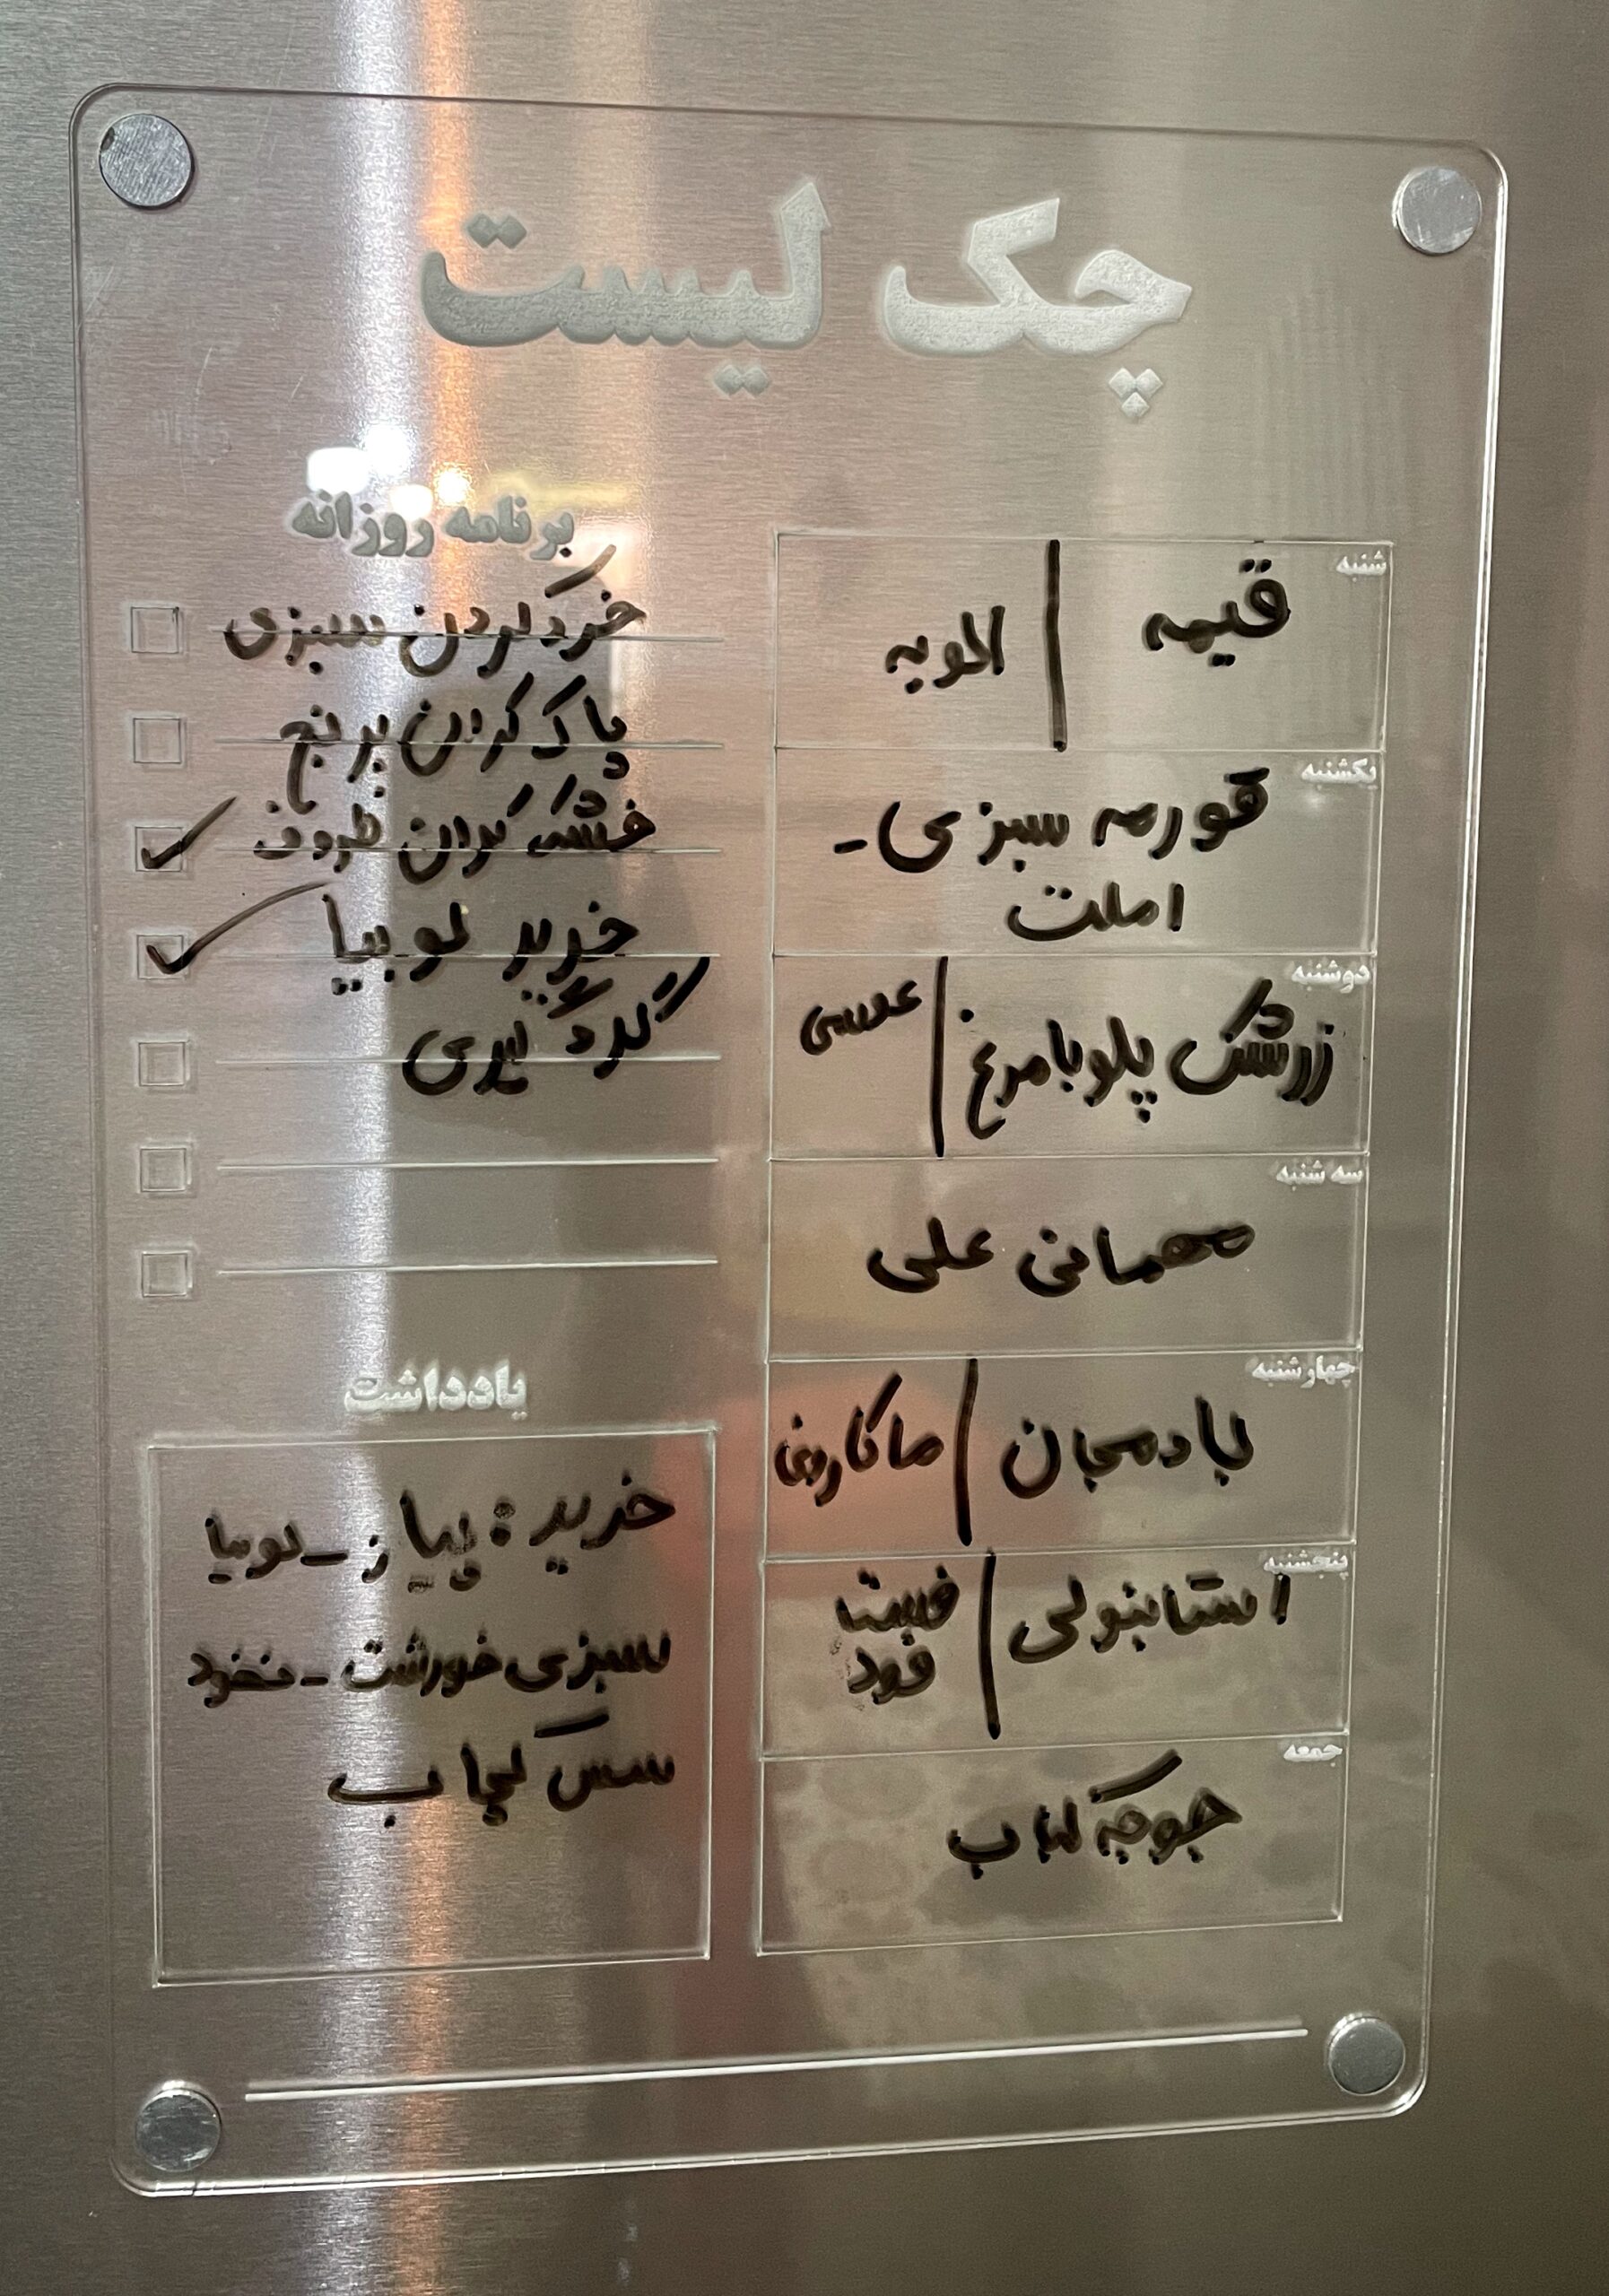 چک لیست
شنبه
قیمه | الویه
یکشنبه
قورمه سبزی -
املت
دوشنبه
زرشک پلو با مرغ | عدسی
سه شنبه
مهمانی علی
چهارشنبه
بادمجان | ماکارونی
پنجشنبه
استانبولی | فست
فود
جمعه
جوجه کباب
برنامه روزانه
خرد کردن سبزی
پاک کردن برنج
خشک کردن ظروف ✓
خرید لوبیا ✓
گردگیری
یادداشت
خرید: پیاز - لوبیا
سبزی خورشت - نخود
سس کچاپ